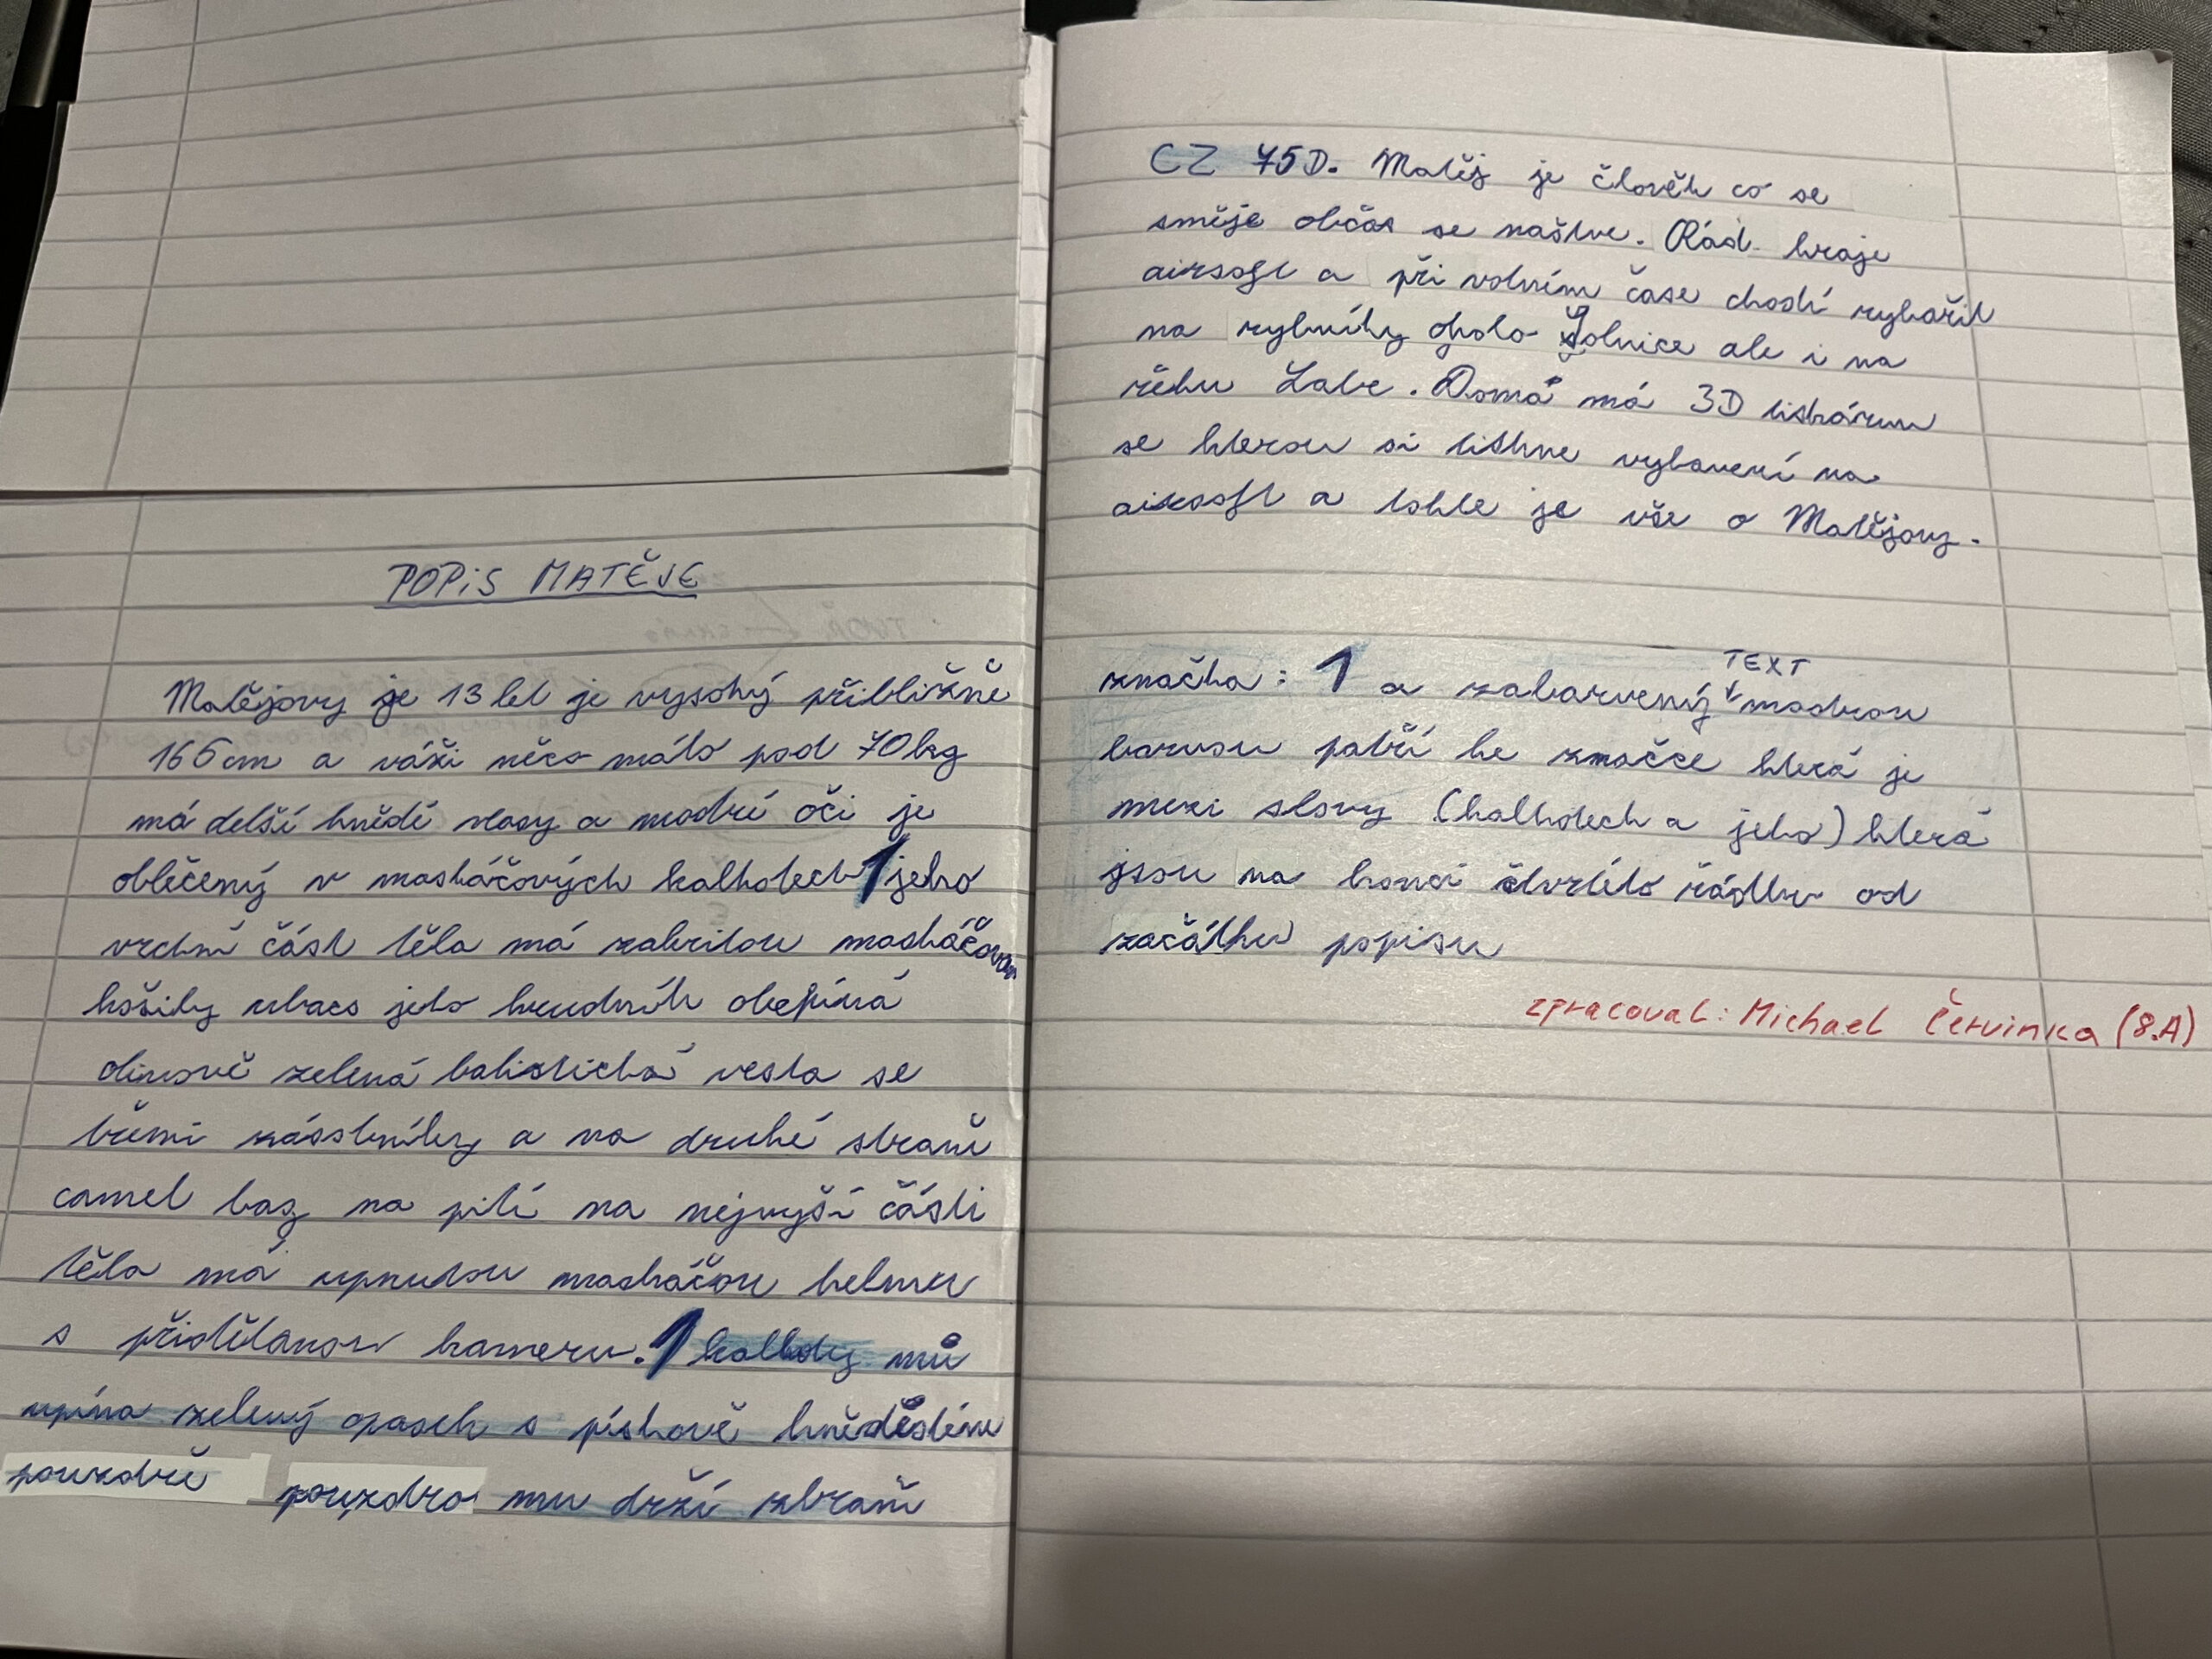 POPIS MATĚJE
Matějovy je 13 let je vysoký přibližně
166cm a váži něco málo pod 70kg
má delší hnědé vlasy a modré oči je
oblečený v maskáčových kalhotech 1 jeho
vrchní část těla má zakritou maskáčovou
košily ubacs jeho hrudník obepíná
olivově zelená balistická vesta se
třemi zásobníky a na druhé straně
camel bag na pití na nejvyší části
těla má upnutou maskáčou helmu
s přidělanou kameru. 1 kalhoty mů
upína zelený opasek s pískově hnědě
pouzdře pouzdro mu drží zbraň
CZ 75D. Matěj je člověk co se
směje občas se naštve. Rád hraje
airsoft a při volním čase chodí rybařit
na rybníky okolo Solnice ale i na
řeku Labe. Doma má 3D tiskárnu
se kterou si tiskne vybavení na
airsoft a tohle je vše o Matějovy.
značka: 1 a zabarvený TEXT modrou
barvou patří ke značce která je
mezi slovy (kalhotech a jeho) která
jsou na konci čtvrtého řádku od
začátku popisu
zpracoval: Michael Červinka (8.A)